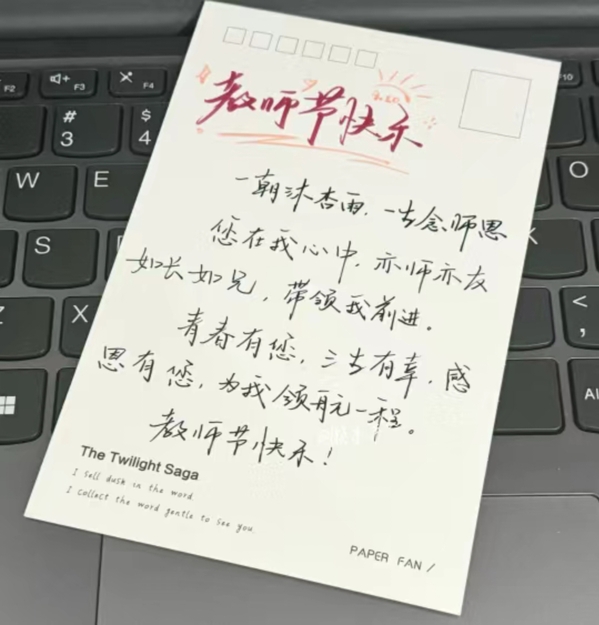 教师节快乐
9.10
一朝沐杏雨，一生念师恩
您在我心中，亦师亦友
如长如兄，带领我前进。
青春有您，三生有幸，感
恩有您，为我领航一程。
教师节快乐！
The Twilight Saga
I sell dusk in the word.
I collect the word gentle to see you.
PAPER FAN /
F2
F3
F4
F10
# 3
$ 4
W
E
O
S
D
K
Z
X
< ,